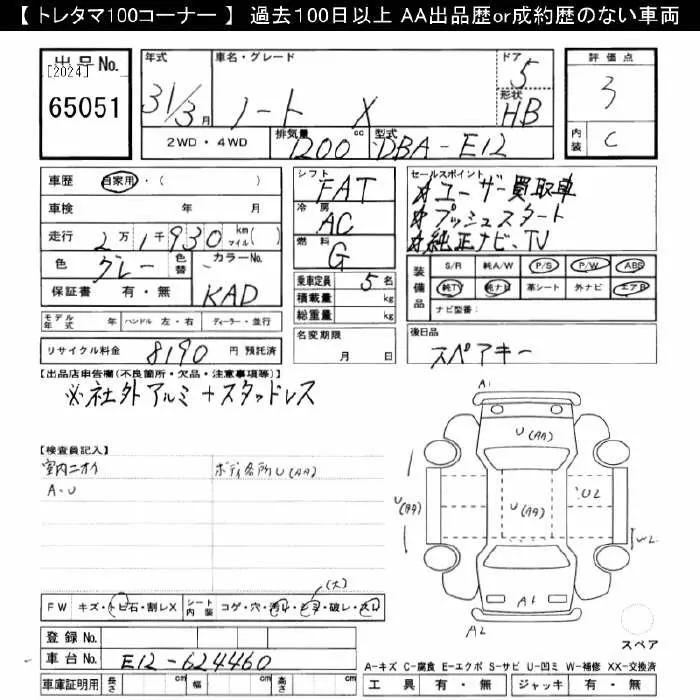 【 トレタマ100コーナー 】 過去100日以上 AA出品歴or成約歴のない車両
出品No.
[2024]
65051
年式 31/3月
車名・グレード ノート X
ドア 5
形状 HB
2WD・4WD
排気量 1200 cc
型式 DBA-E12
評価点 3
内装 C
車歴 自家用・( )
車検 年 月
走行 2万1千930 km マイル( )
色 グレー 色替 カラーNo. KAD
保証書 有・無
モデル年式 年 ハンドル 左・右 ディーラー・並行
リサイクル料金 8190 円 預託済
シフト FAT
冷房 AC
燃料 G
乗車定員 5 名
積載量 kg
総重量 kg
名変期限 月 日
セールスポイント
★ユーザー買取車
★プッシュスタート
★純正ナビ、TV
装備品 S/R 純A/W P/S P/W ABS
純TV 純ナビ 革シート 外ナビ エアB
ナビ型番( )
後日品
スペアキー
【出品店申告欄(不良箇所・欠品・注意事項等)】
※社外アルミ+スタッドレス
【検査員記入】
室内ニオイ
A・U
ボディ各所U(AA)
(大)
FW キズ・トビ石・割レX シート内装 コゲ・穴・汚レ・シミ・破レ・スレ
登録No.
車台No. E12-624460
車庫証明用 長さ cm 幅 cm 高さ cm
A1
U(AA)
U(AA)
U(AA)
U2
W2
A1
A2
スペア
A-キズ C-腐食 E-エクボ S-サビ U-凹ミ W-補修 XX-交換済
工具 有・無 ジャッキ 有・無